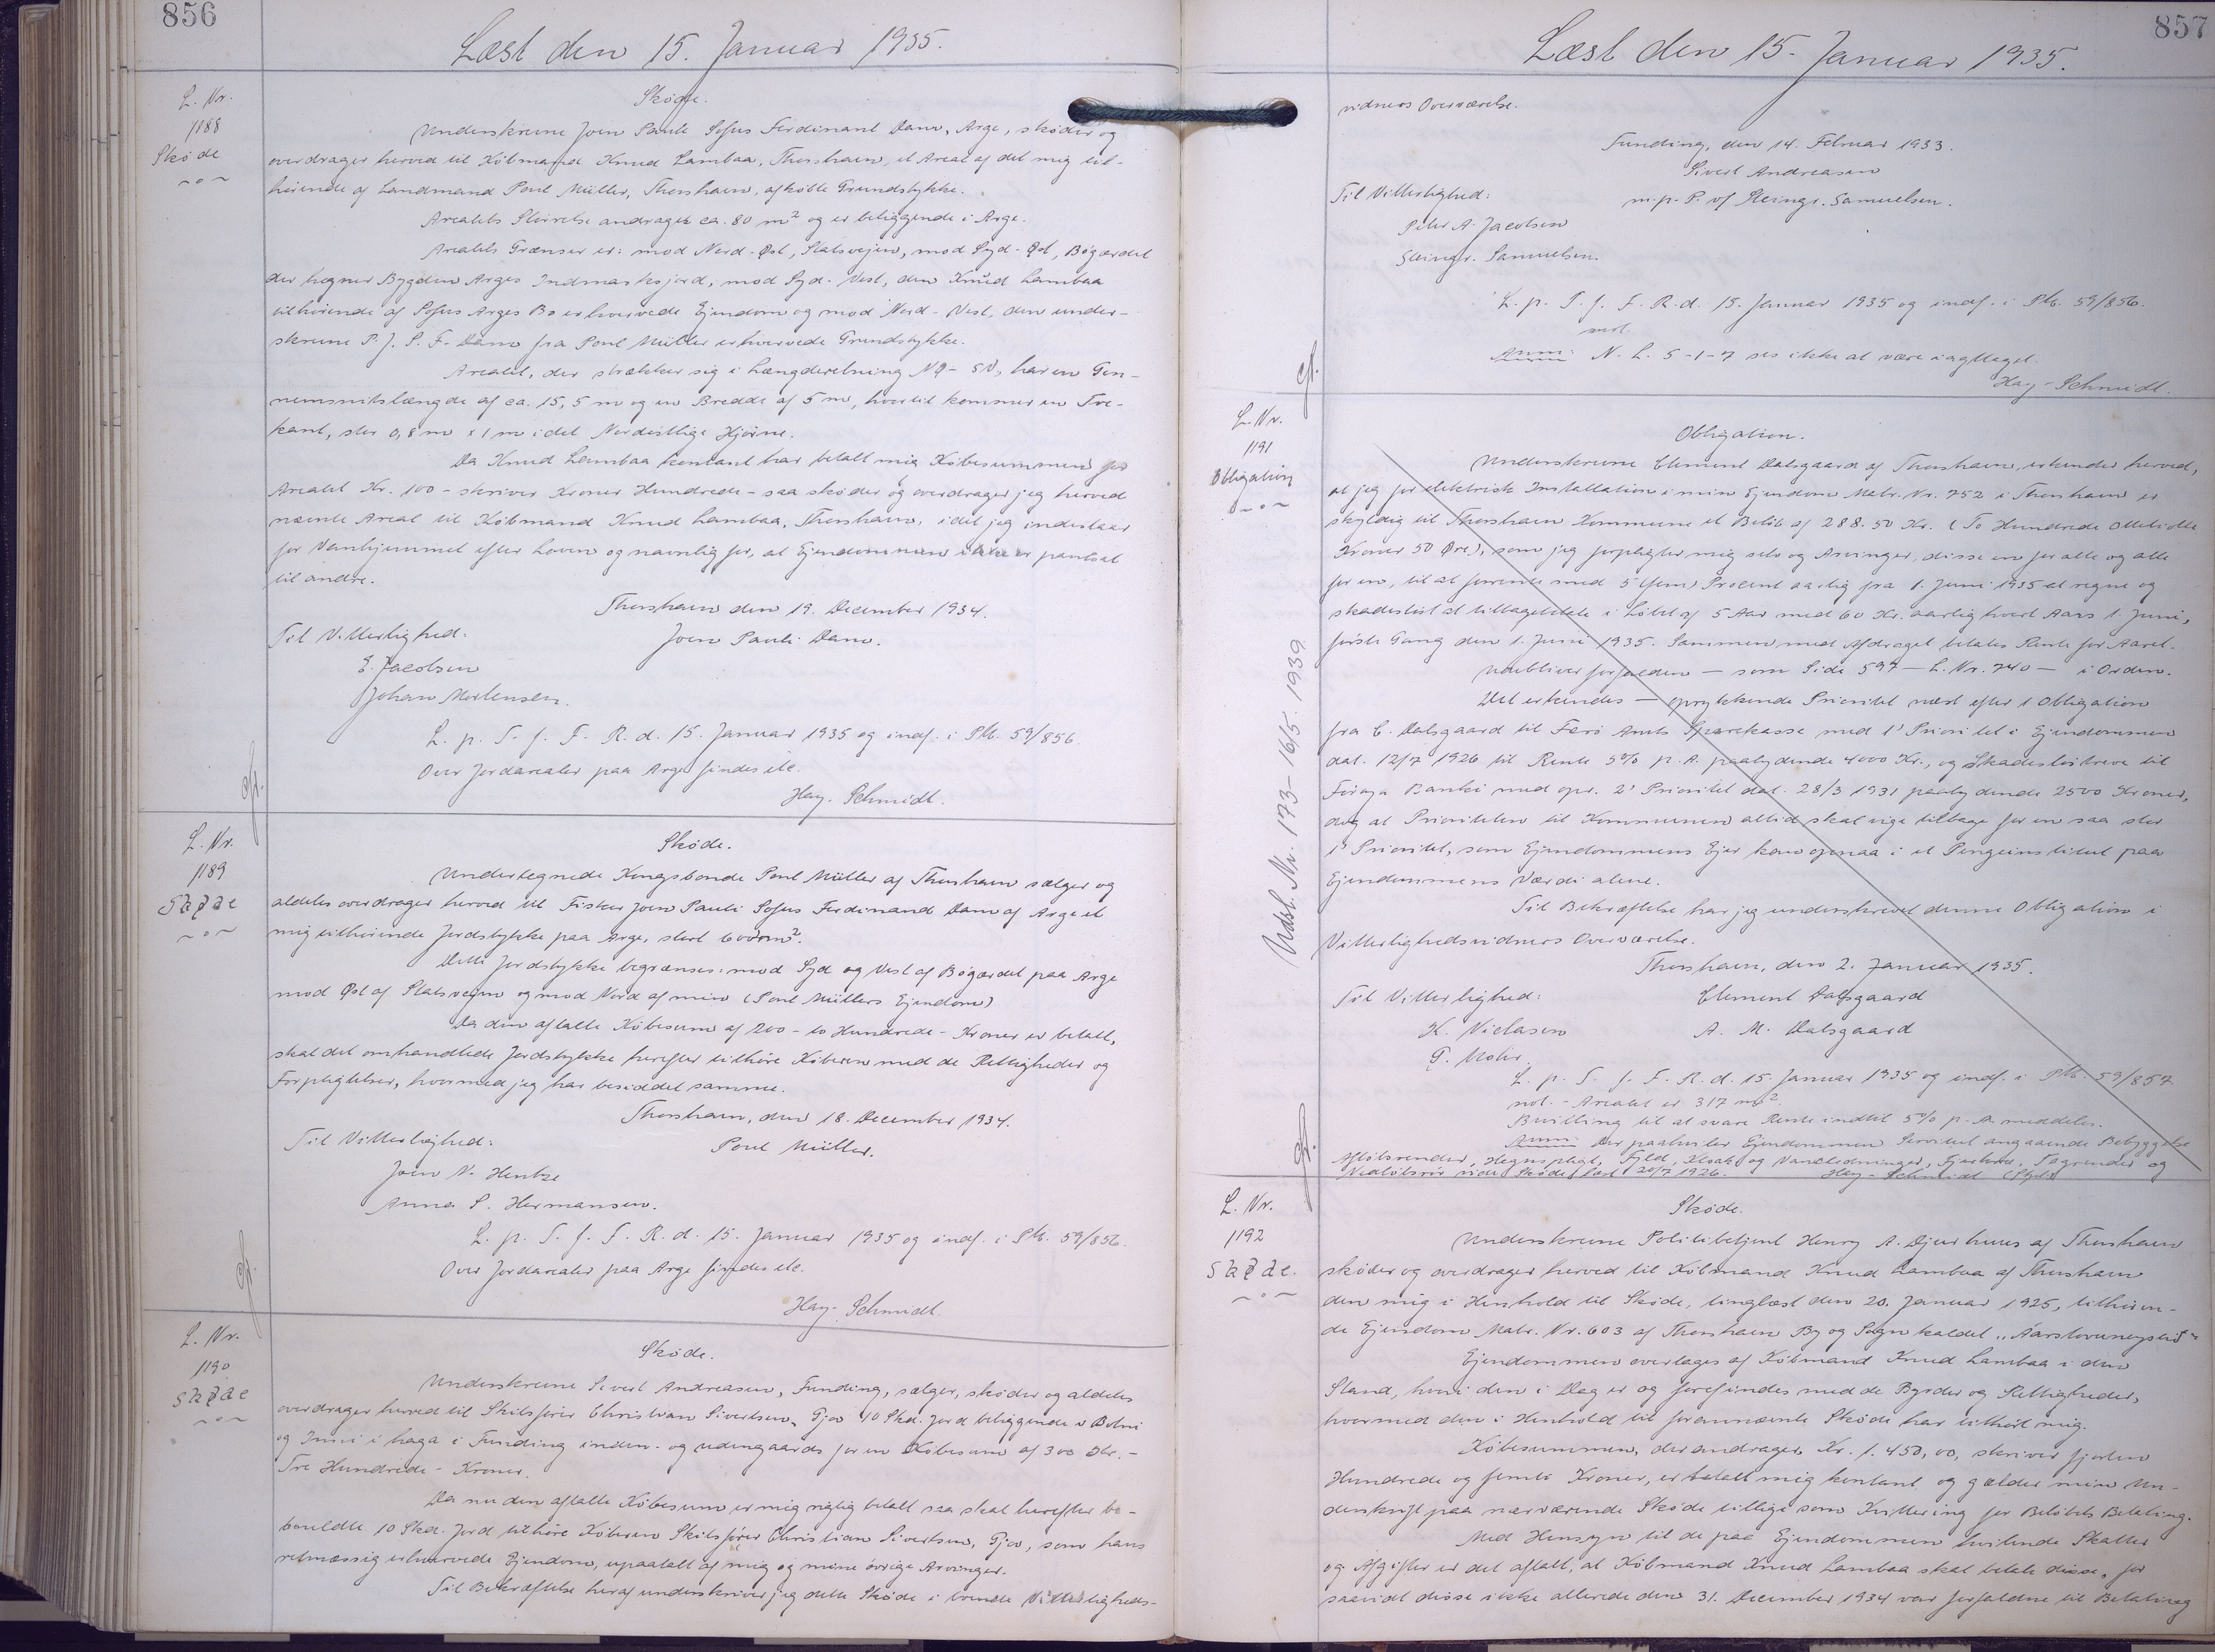 856
Læst den 15. Januar 1935.
L. Nr.
1188
Skøde
Skøde.
Underskrevne Joen Pauli Sofus Ferdinant Dam, Arge, skøder og
overdrager herved til Købmand Knud Lambaa, Thorshavn, et Areal af det mig til-
hørende af Landmand Poul Müller, Thorshavn, afkøbte Grundstykke.
Arealets Størrelse andrager ca. 80 m² og er beliggende i Arge.
Arealets Grænser er: mod Nord-Øst, Statsvejen, mod Syd-Øst, Bøgærdet
der hegner Bygden Arges Indmarksjord, mod Syd-Vest, den Knud Lambaa
tilhørende af Sofus Arges Bo erhvervede Ejendom og mod Nord-Vest, den under-
skrevne P. J. S. F. Dam fra Poul Müller erhvervede Grundstykke.
Arealet, der strækker sig i Længderetning NØ-SV, har en Gen-
nemsnitslængde af ca. 15,5 m og en Bredde af 5 m, hvortil kommer en Tre-
kant, stor 0,8 m x 1 m i det Nordøstlige Hjørne.
Da Knud Lambaa kontant har betalt mig Købesummen for
Arealet Kr. 100 - skriver Kroner Hundrede - saa skøder og overdrager jeg herved
nævnte Areal til Købmand Knud Lambaa, Thorshavn, idet jeg indestaar
for Vanhjemmel efter Loven og navnlig for, at Ejendommen ikke er pantsat
til andre.
Thorshavn den 19. December 1934.
Til Vitterlighed:
Joen Pauli Dam.
E. Jacobsen
Johan Mortensen.
L. p. T. f. F. R. d. 15. Januar 1935 og indf. i Ptb. 59/856.
Over Jordarealer paa Arge findes ile.
Hay-Schmidt.
L. Nr.
1189
Skøde
Skøde.
Undertegnede Kongsbonde Poul Müller af Thorshavn sælger og
aldeles overdrager herved til Fisker Joen Pauli Sofus Ferdinand Dam af Arge et
mig tilhørende Jordstykke paa Arge, stort 600 m².
Dette Jordstykke begrænses: mod Syd og Vest af Bøgærdet paa Arge
mod Øst af Statsvejen og mod Nord af min (Poul Müllers Ejendom)
Da den aftalte Købesum af 200 - to Hundrede - Kroner er betalt,
skal det omhandlede Jordstykke herefter tilhøre Køberen med de Rettigheder og
Forpligtelser, hvormed jeg har besiddet samme.
Thorshavn, den 18. December 1934.
Til Vitterlighed:
Poul Müller.
Joen V. Hentze
Anna S. Hermansen.
L. p. T. f. F. R. d. 15. Januar 1935 og indf. i Ptb. 59/856.
Over Jordarealer paa Arge findes ile.
Hay-Schmidt.
L. Nr.
1190
Skøde
Skøde.
Underskrevne Sivert Andreasen, Funding, sælger, skøder og aldeles
overdrager herved til Skibsfører Christian Sivertsen, Gjov 10 Skd. Jord beliggende i Botni
og Inni i haga i Funding inden- og udengaards for en Købesum af 300 Kr. -
Tre Hundrede - Kroner.
Da nu den aftalte Købesum er mig rigtig betalt saa skal herefter be-
bemeldte 10 Skd. Jord tilhøre Køberen Skibsfører Christian Sivertsen, Gjov, som hans
retmæssig erhvervede Ejendom, upaatalt af mig og mine øvrige Arvinger.
Til Bekræftelse heraf underskriver jeg dette Skøde i tvende Vitterligheds-
857
Læst den 15. Januar 1935.
vidners Overværelse.
Funding, den 14. Februar 1933.
Sivert Andreasen
Til Vitterlighed:
m. p. P. v/ Steingr. Samuelsen.
Peter A. Jacobsen
Steingr. Samuelsen.
L. p. T. f. F. R. d. 15. Januar 1935 og indf. i Ptb. 59/856.
not.
Anm: N. L. 5-1-7 ses ikke at være iagttaget.
Hay-Schmidt.
L. Nr.
1191
Obligation
Udsl. Nr. 173 - 16/5 1939
Obligation.
Underskrevne Clement Dalsgaard af Thorshavn, erkender herved,
at jeg for elektrisk Installation i min Ejendom Matr. Nr. 752 i Thorshavn er
skyldig til Thorshavn Kommune et Beløb af 288.50 Kr. (To Hundrede Ottetiotte
Kroner 50 Øre), som jeg forpligter mig selv og Arvinger, disse en for alle og alle
for en, til at forrente med 5 (fem) Procent aarlig fra 1. Juni 1935 at regne og
skadesløst at tilbagebetale i Løbet af 5 Aar med 60 Kr. aarlig hvert Aars 1. Juni,
første Gang den 1. Juni 1935. Sammen med Afdraget betales Rente for Aaret.
Udebliver forfalden — som Side 597 — L. Nr. 740 — i Orden.
Det erkendes — oprykkende Prioritet næst efter 1 Obligation
fra C. Dalsgaard til Færø Amts Sparekasse med 1' Prioritet i Ejendommen
dat. 12/7 1926 til Rente 5% p. A. paalydende 4000 Kr., og Skadesløsbrev til
Føroya Banki med opr. 2' Prioritet dat. 28/3 1931 paalydende 2500 Kroner,
dog at Prioriteten til Kommunen altid skal vige tilbage for en saa stor
1' Prioritet, som Ejendommens Ejer kan opnaa i et Pengeinstitut paa
Ejendommens Værdi alene.
Til Bekræftelse har jeg underskrevet denne Obligation i
Vitterlighedsvidners Overværelse.
Thorshavn, den 2. Januar 1935.
Til Vitterlighed:
Clement Dalsgaard
K. Niclasen
A. M. Dalsgaard
L. p. T. f. F. R. d. 15. Januar 1935 og indf. i Ptb. 59/857.
not. - Arealet er 317 m².
Bevilling til at svare Rente indtil 5% p. A. meddeles.
Anm: Der paahviler Ejendommen Servitut angaaende Bebyggelse
Afløbsrender, Hegnspligt, Fyld, Kloak og Vandledninger, Tagrender og
Nedløbsrør vide Skøde læst 20/7 1926. Hay-Schmidt
L. Nr.
1192
Skøde.
Skøde.
Underskrevne Politibetjent Henry A. Djurhuus af Thorshavn
skøder og overdrager herved til Købmand Knud Lambaa af Thorshavn
den mig i Henhold til Skøde, tinglæst den 20. Januar 1925, tilhøren-
de Ejendom Matr. Nr. 603 af Thorshavn By og Sogn kaldet
Ejendommen overtages af Købmand Knud Lambaa i den
Stand, hvori den i Dag er og forefindes med de Byrder og Rettigheder,
hvormed den i Henhold til forannævnte Skøde har tilhørt mig.
Købesummen, der andrager Kr. 1.450,00, skriver fjorten
Hundrede og femti Kroner, er betalt mig kontant og gælder min Un-
derskrift paa nærværende Skøde tillige som Kvittering for Beløbets Betaling.
Med Hensyn til de paa Ejendommen hvilende Skatter
og Afgifter er det aftalt, at Købmand Knud Lambaa skal betale disse, for
saavidt disse ikke allerede den 31. December 1934 var forfaldne til Betaling